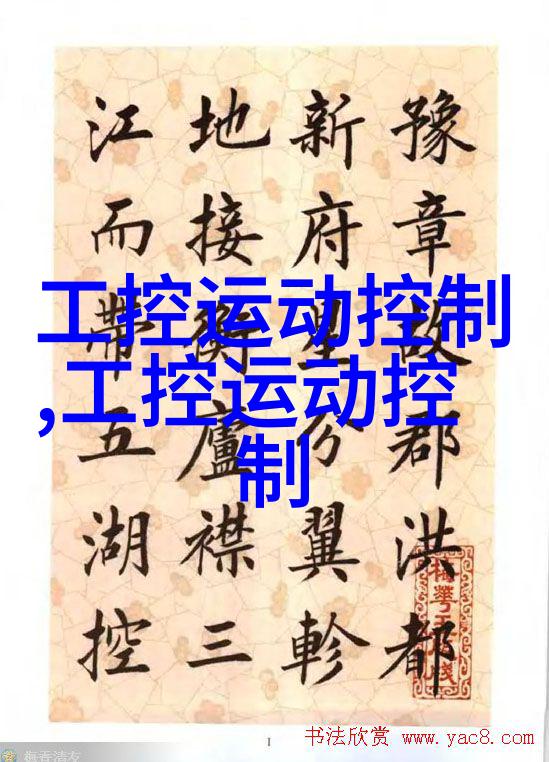 豫章故郡洪都
新府星分翼軫
地接衡廬襟三
江而帶五湖控
工控运动控制
,工控运动控
制
I
书法欣赏 www.yac8.com
梅香清友